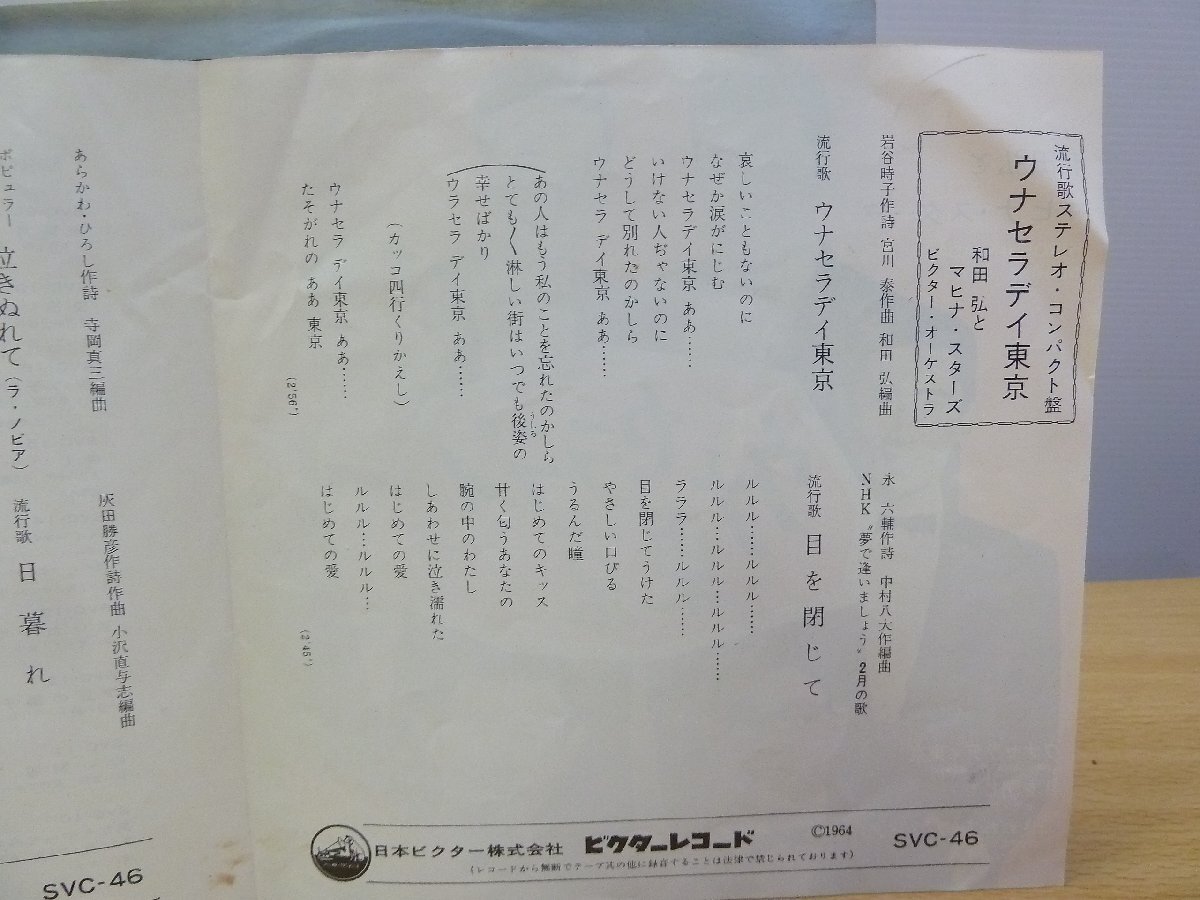 流行歌ステレオ・コンパクト盤
ウナセラデイ東京
和田 弘と
マヒナ・スターズ
ビクター・オーケストラ
岩谷時子作詩 宮川 泰作曲 和田 弘編曲
流行歌 ウナセラデイ東京
哀しいこともないのに
なぜか涙がにじむ
ウナセラデイ東京 ああ……
いけない人ぢゃないのに
どうして別れたのかしら
ウナセラ デイ東京 ああ……
あの人はもう私のことを忘れたのかしら
とても〱淋しい街はいつでも後姿の
うしろ
幸せばかり
ウラセラ デイ東京 ああ……
(カッコ四行くりかえし)
ウナセラ デイ東京 ああ……
たそがれの ああ 東京
(2'56")
永 六輔作詩 中村八大作編曲
NHK〝夢で逢いましょう〟2月の歌
流行歌 目を閉じて
ルルル……ルルル……
ルルル…ルルル…ルルル……
ラララ……ルルル……
目を閉じてうけた
やさしい口びる
うるんだ瞳
はじめてのキッス
甘く匂うあなたの
腕の中のわたし
しあわせに泣き濡れた
はじめての愛
ルルル…ルルル…
はじめての愛
(2'45")
日本ビクター株式会社 ビクターレコード Ⓒ1964 SVC-46
(レコードから無断でテープ其の他に録音することは法律で禁じられております)
あらかわ・ひろし作詩 寺岡真三編曲
ポピュラー 泣きぬれて(ラ・ノビア)
灰田勝彦作詩作曲 小沢直与志編曲
流行歌 日暮れ
SVC-46